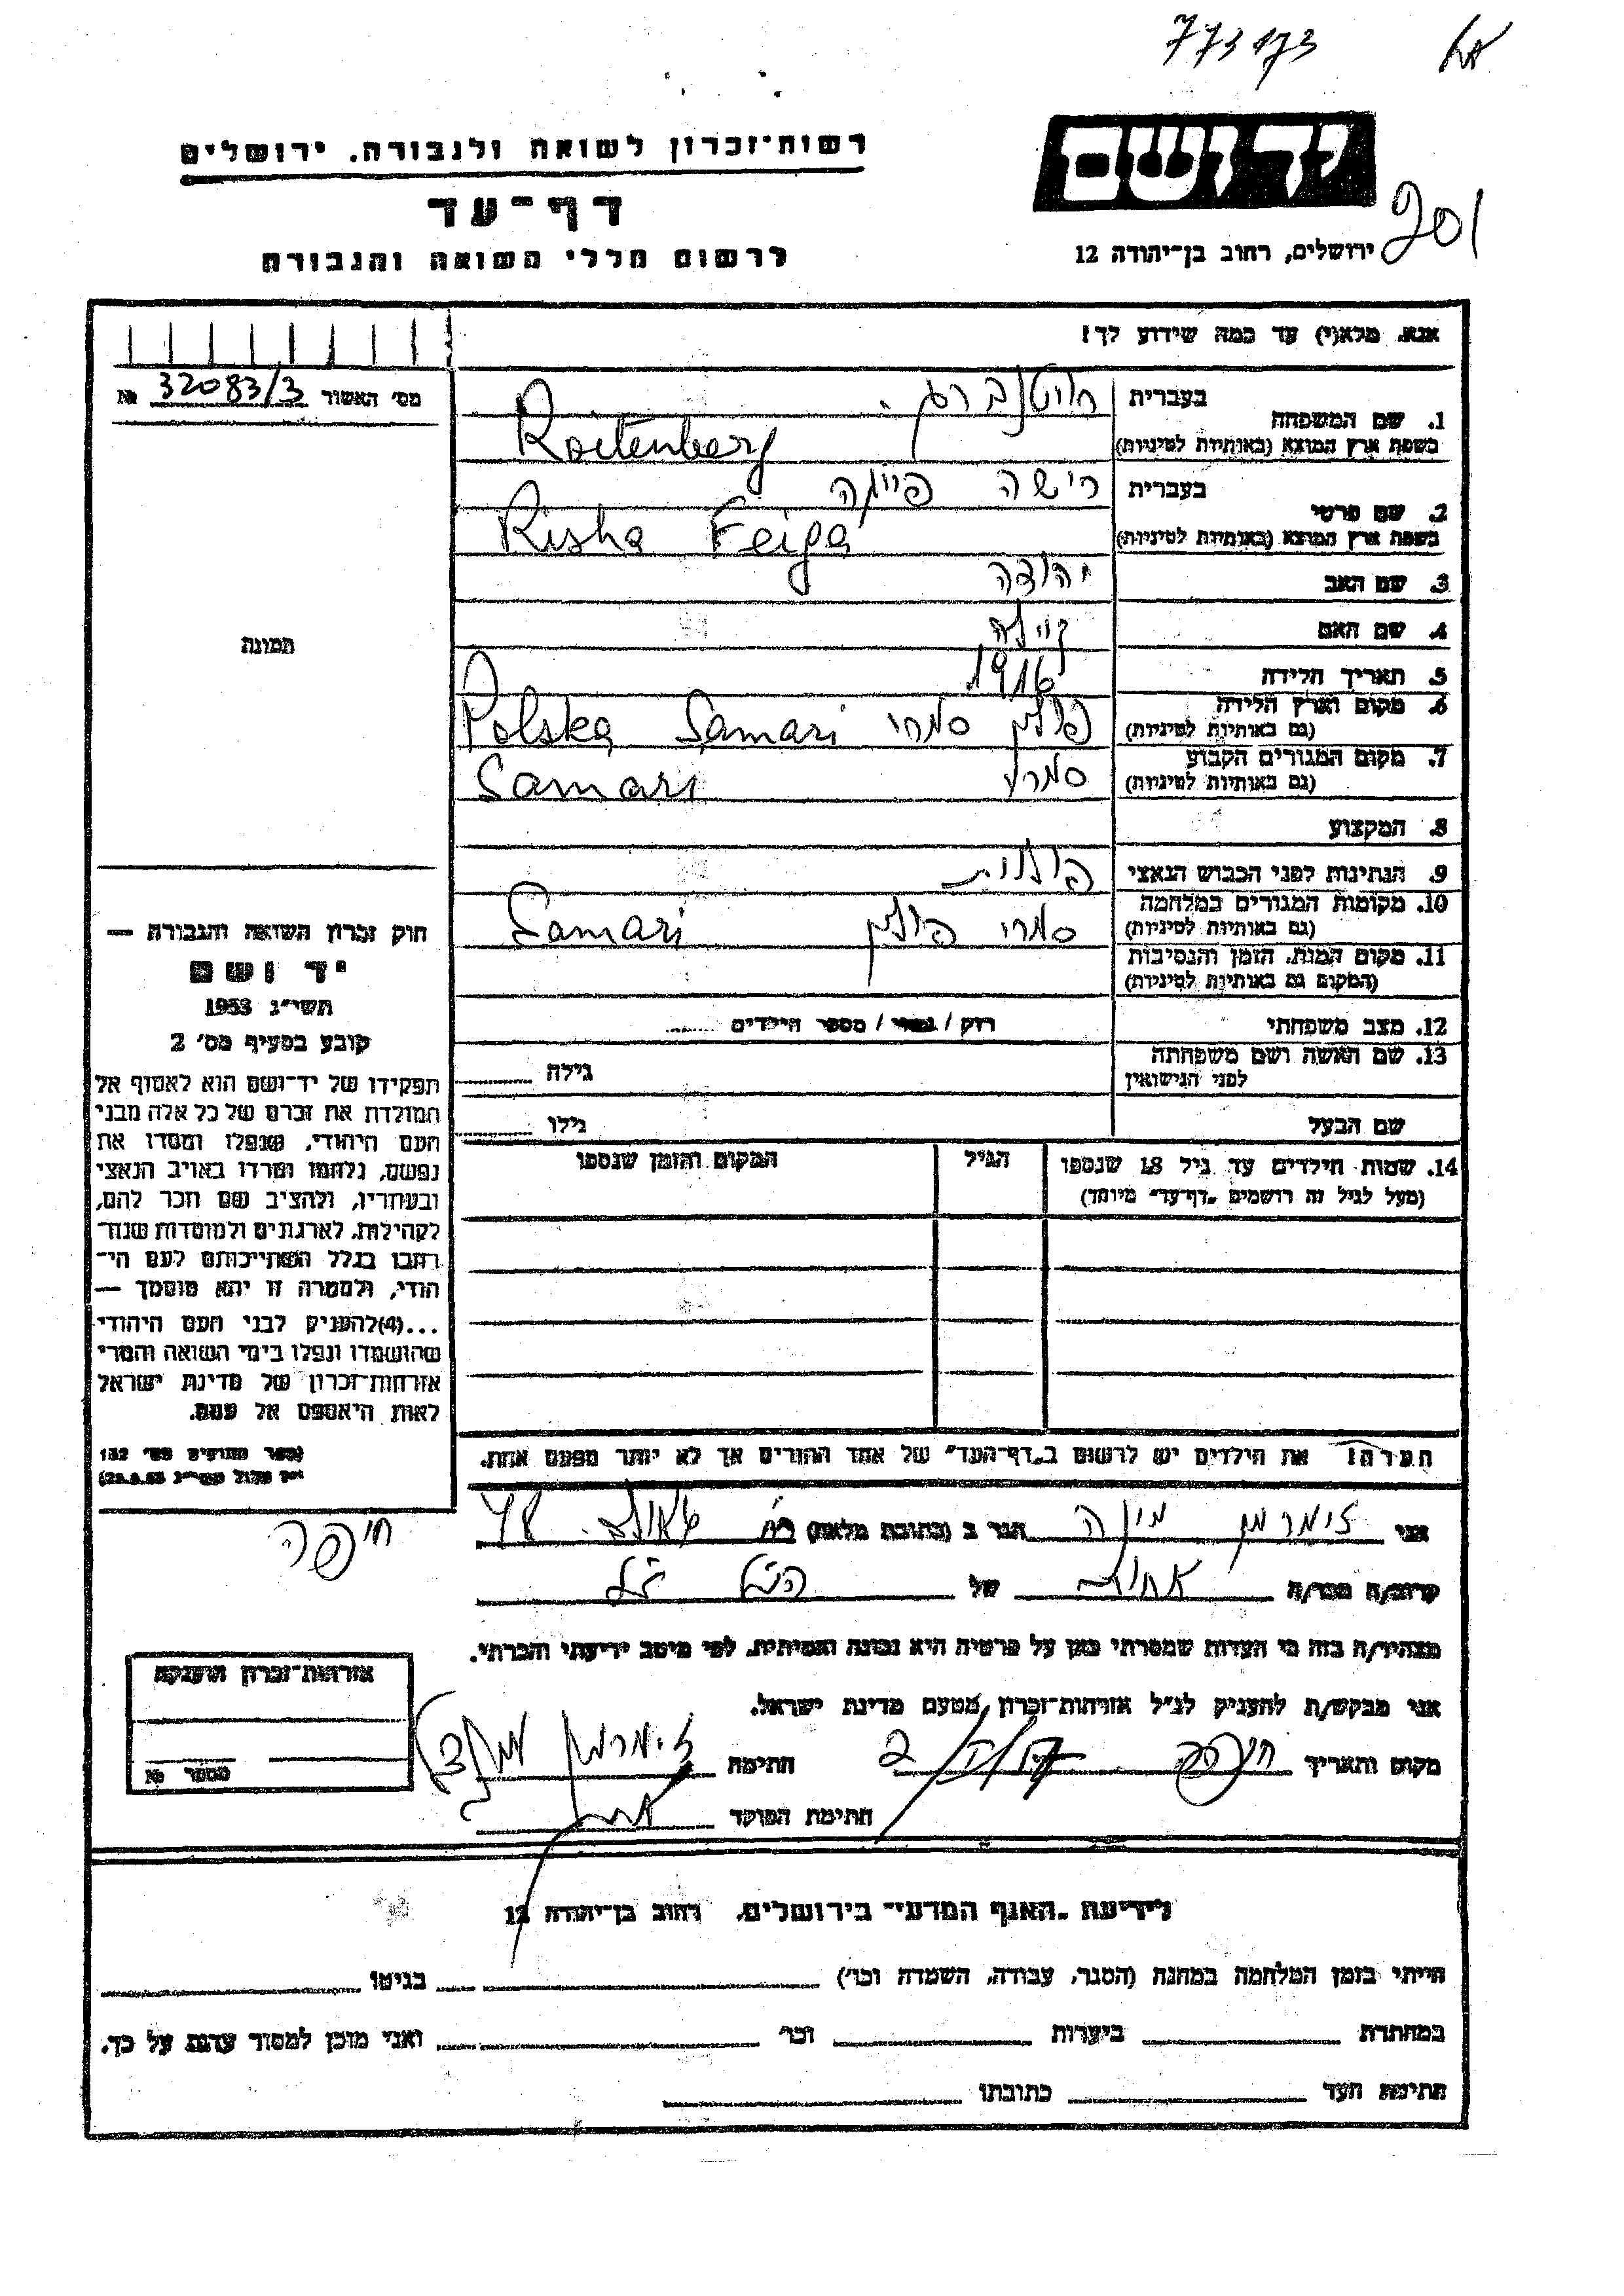 773173
רשות־זכרון לשואה ולגבורה, ירושלים
יד ושם
דף־עד
201
לרשום חללי השואה והגבורה
ירושלים, רחוב בן־יהודה 12
אנא, מלא(י) עד כמה שידוע לך!
מס׳ האשור 32083/3 №
1. שם המשפחה
בעברית רויטנברג
בשפת ארץ המוצא (באותיות לטיניות) Roitenberg
2. שם פרטי
בעברית רישה פייגה
בשפת ארץ המוצא (באותיות לטיניות) Risha Feiga
3. שם האב יהודה
4. שם האם
תמונה
5. תאריך הלידה 1916
6. מקום וארץ הלידה (גם באותיות לטיניות) פולין סמרי Samari Polska
7. מקום המגורים הקבוע (גם באותיות לטיניות) סמרי Samari
8. המקצוע
9. הנתינות לפני הכבוש הנאצי פולנית
10. מקומות המגורים במלחמה (גם באותיות לטיניות) סמרי פולין Samari
11. מקום המות, הזמן והנסיבות (המקום גם באותיות לטיניות)
12. מצב משפחתי רוק / נשוי / מספר הילדים
13. שם האשה ושם משפחתה לפני הנישואין גילה
שם הבעל גילו
14. שמות הילדים עד גיל 18 שנספו הגיל המקום והזמן שנספו
(מעל לגיל זה רושמים „דף־עד״ מיוחד)
חוק זכרון השואה והגבורה —
יד ושם
תשי״ג 1953
קובע בסעיף מס׳ 2
תפקידו של יד־ושם הוא לאסוף אל
המולדת את זכרם של כל אלה מבני
העם היהודי, שנפלו ומסרו את
נפשם, נלחמו ומרדו באויב הנאצי
ובעוזריו, ולהציב שם וזכר להם,
לקהילות, לארגונים ולמוסדות שנח־
רבו בגלל השתייכותם לעם הי־
הודי, ולמטרה זו יהא מוסמך —
...(4)להעניק לבני העם היהודי
שהושמדו ונפלו בימי השואה והמרי
אזרחות־זכרון של מדינת ישראל
לאות היאספם אל עמם.
(ספר החוקים מס׳ 132
הערה! את הילדים יש לרשום ב„דף־העד״ של אחד ההורים אך לא יותר מפעם אחת.
אני זימרמן מינה הגר ב (כתובת מלאה)
חיפה
קרוב/ה מכר/ה אחות של הנ״ל ז״ל
מצהיר/ה בזה כי העדות שמסרתי כאן על פרטיה היא נכונה ואמיתית, לפי מיטב ידיעתי והכרתי.
אני מבקש/ת להעניק לנ״ל אזרחות־זכרון מטעם מדינת ישראל.
מקום ותאריך חיפה חתימה זימרמן מינה
חתימת הפוקד
אזרחות־זכרון הוענקה
מספר №
לידיעת „האגף המדעי״ בירושלים, רחוב בן־יהודה 12
הייתי בזמן המלחמה במחנה (הסגר, עבודה, השמדה וכו׳) בגיטו
במחתרת ביערות וכו׳ ואני מוכן למסור עדות על כך.
חתימת העד כתובתו